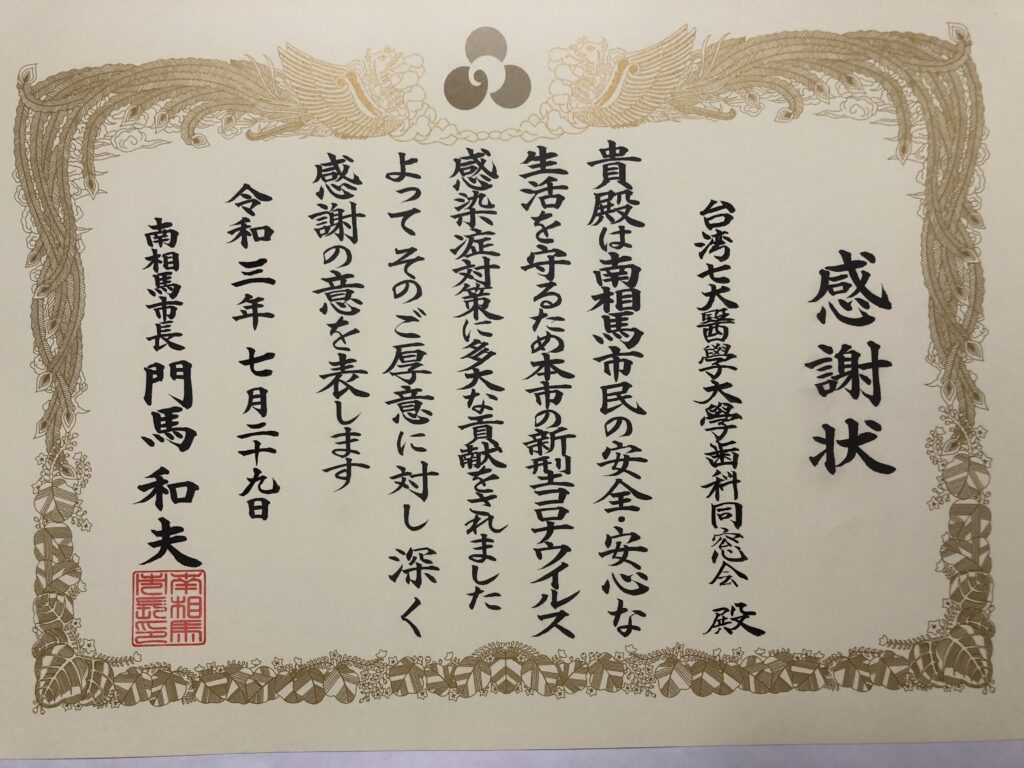 感謝状
台湾七大醫學大學歯科同窓会 殿
貴殿は南相馬市民の安全・安心な
生活を守るため本市の新型コロナウイルス
感染症対策に多大な貢献をされました
よってそのご厚意に対し深く
感謝の意を表します
令和三年七月二十九日
南相馬市長 門馬和夫
南相馬
市長印